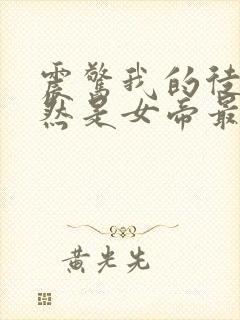 震惊我的徒
然是女帝最
黄光先